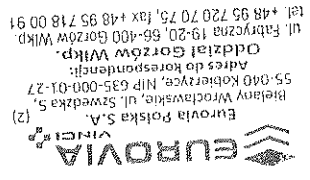 EUROVIA
VINCI
Eurovia Polska S.A. (2)
Bielany Wrocławskie, ul. Szwedzka 5,
55-040 Kobierzyce, NIP 635-000-01-27
Adres do korespondencji:
Oddział Gorzów Wlkp.
ul. Fabryczna 19-20, 66-400 Gorzów Wlkp.
tel. +48 95 720 70 75, fax +48 95 718 00 91